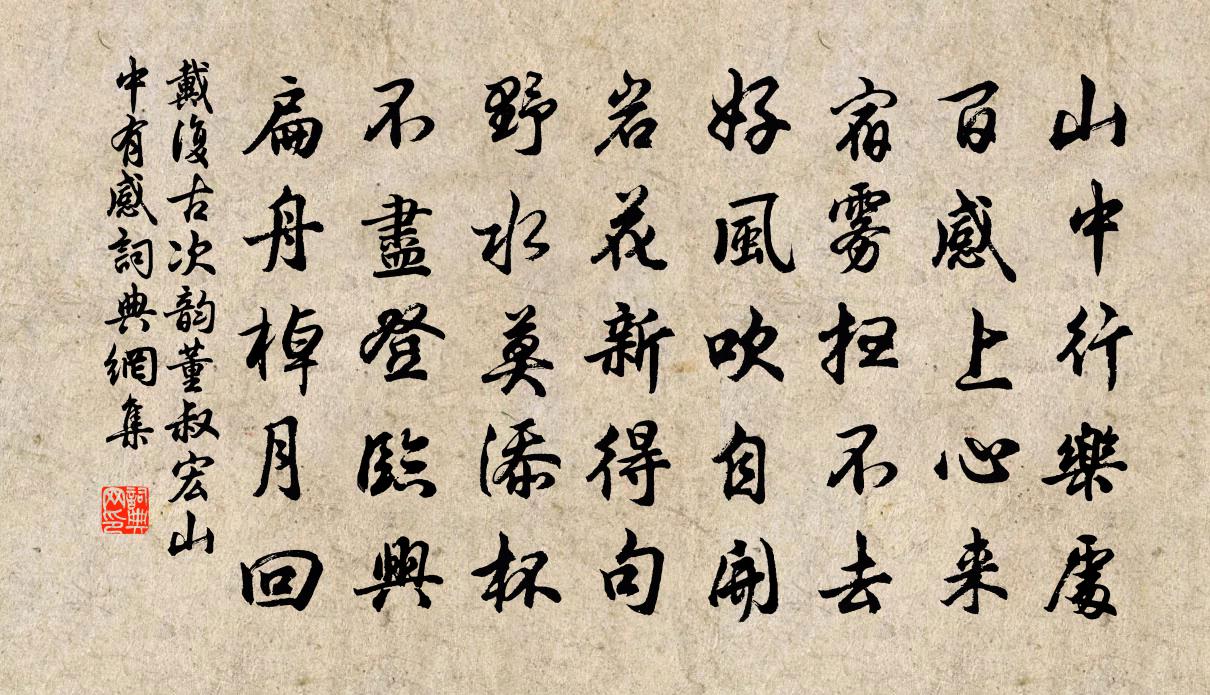 山中行樂處
百感上心来
宿雾扫不去
好風吹自開
岩花新得句
野水莫添杯
不盡登臨興
扁舟棹月回
戴復古次韵董叔宏山
中有感詞典網集
詞典网印